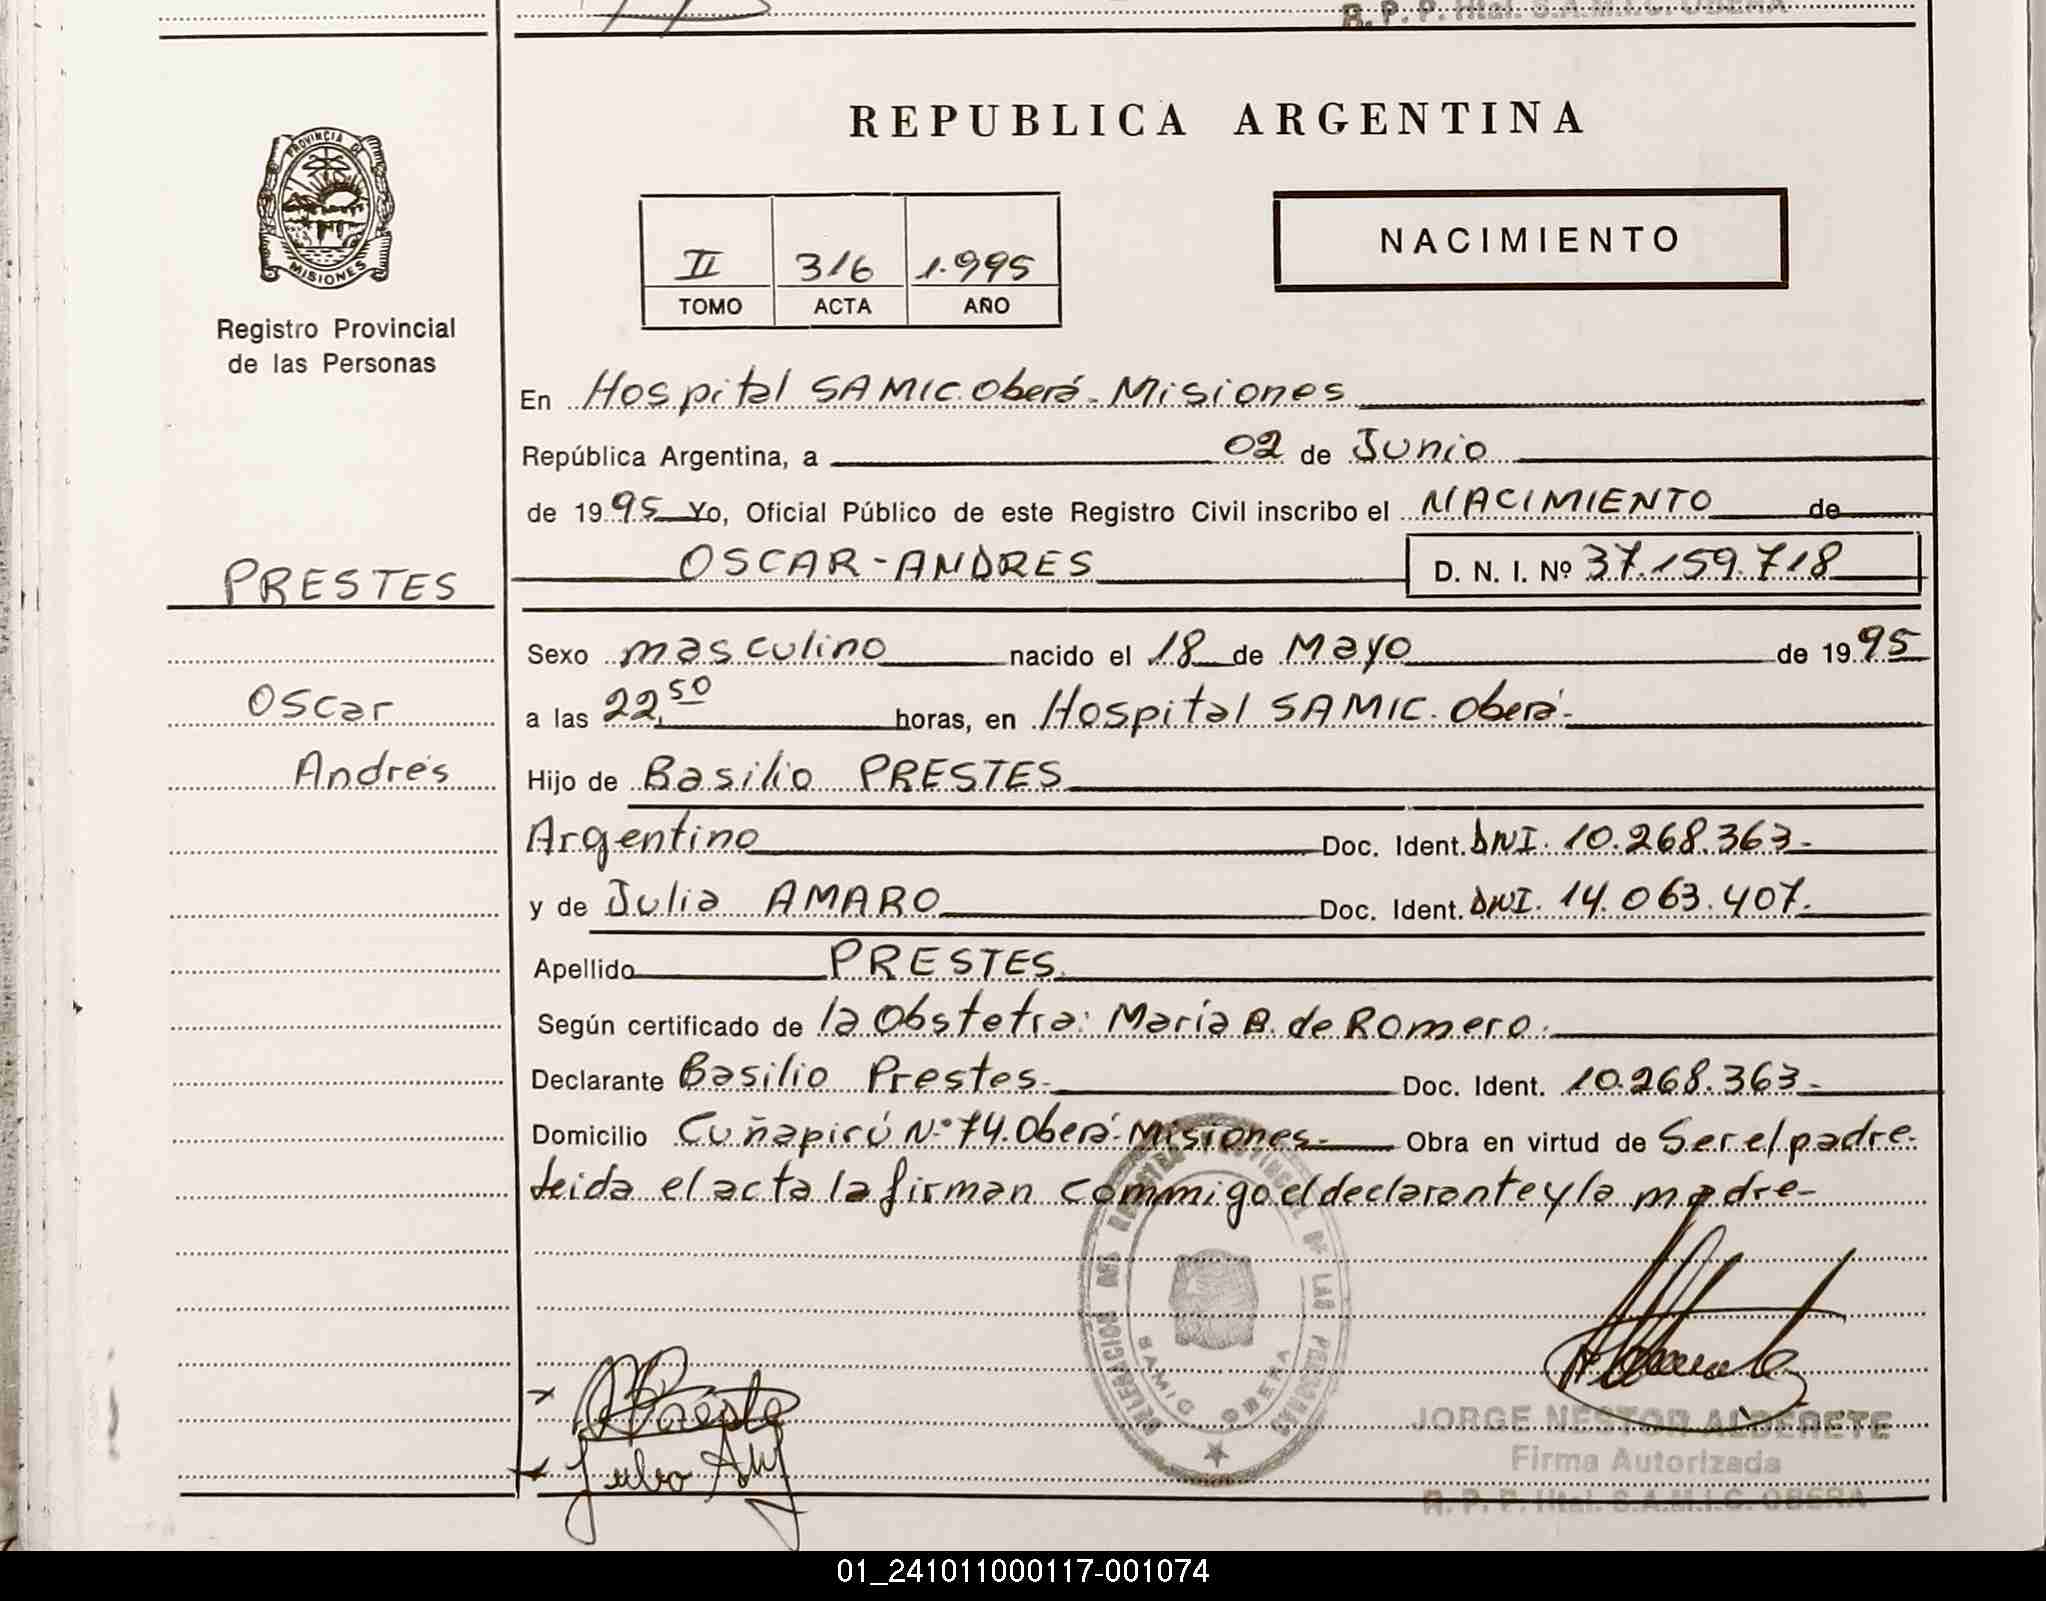 R. P. P. Htal. S.A.M.I.C. OBERA
REPUBLICA ARGENTINA
PROVINCIA DE
MISIONES
Registro Provincial
de las Personas
II 316 1.995
TOMO ACTA AÑO
NACIMIENTO
En Hospital SAMIC. Oberá - Misiones
República Argentina, a 02 de Junio
de 1995 Yo, Oficial Público de este Registro Civil inscribo el NACIMIENTO de
PRESTES
OSCAR-ANDRES D. N. I. Nº 37.159.718
Sexo masculino nacido el 18 de Mayo de 1995
Oscar
a las 22,50 horas, en Hospital SAMIC. Oberá-
Andrés
Hijo de Basilio PRESTES
Argentino Doc. Ident. DNI. 10.268.363-
y de Julia AMARO Doc. Ident. DNI. 14.063.407.
Apellido PRESTES.
Según certificado de la Obstetra: María B. de Romero.
Declarante Basilio Prestes- Doc. Ident. 10.268.363-
Domicilio Cuñapirú N.° 74. Oberá- Misiones- Obra en virtud de Ser el padre-
leida el acta la firman commigo el declarante y la madre-
DELEGACION DEL REGISTRO PROVINCIAL DE LAS PERSONAS
SAMIC OBERA
JORGE NESTOR ALDERETE
Firma Autorizada
R. P. P. Htal. S.A.M.I.C. OBERA
01_241011000117-001074